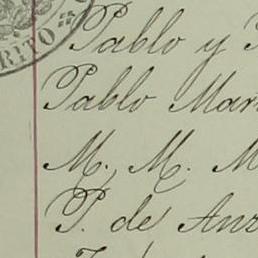 RITO
Pablo y
Pablo Mar
M. M. M
P. de Anz